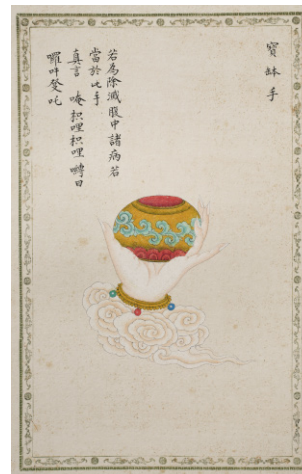 寶缽手
若為除滅腹中諸病苦
當於此手
真言 唵 枳哩枳哩 嚩日
囉吽癹吒